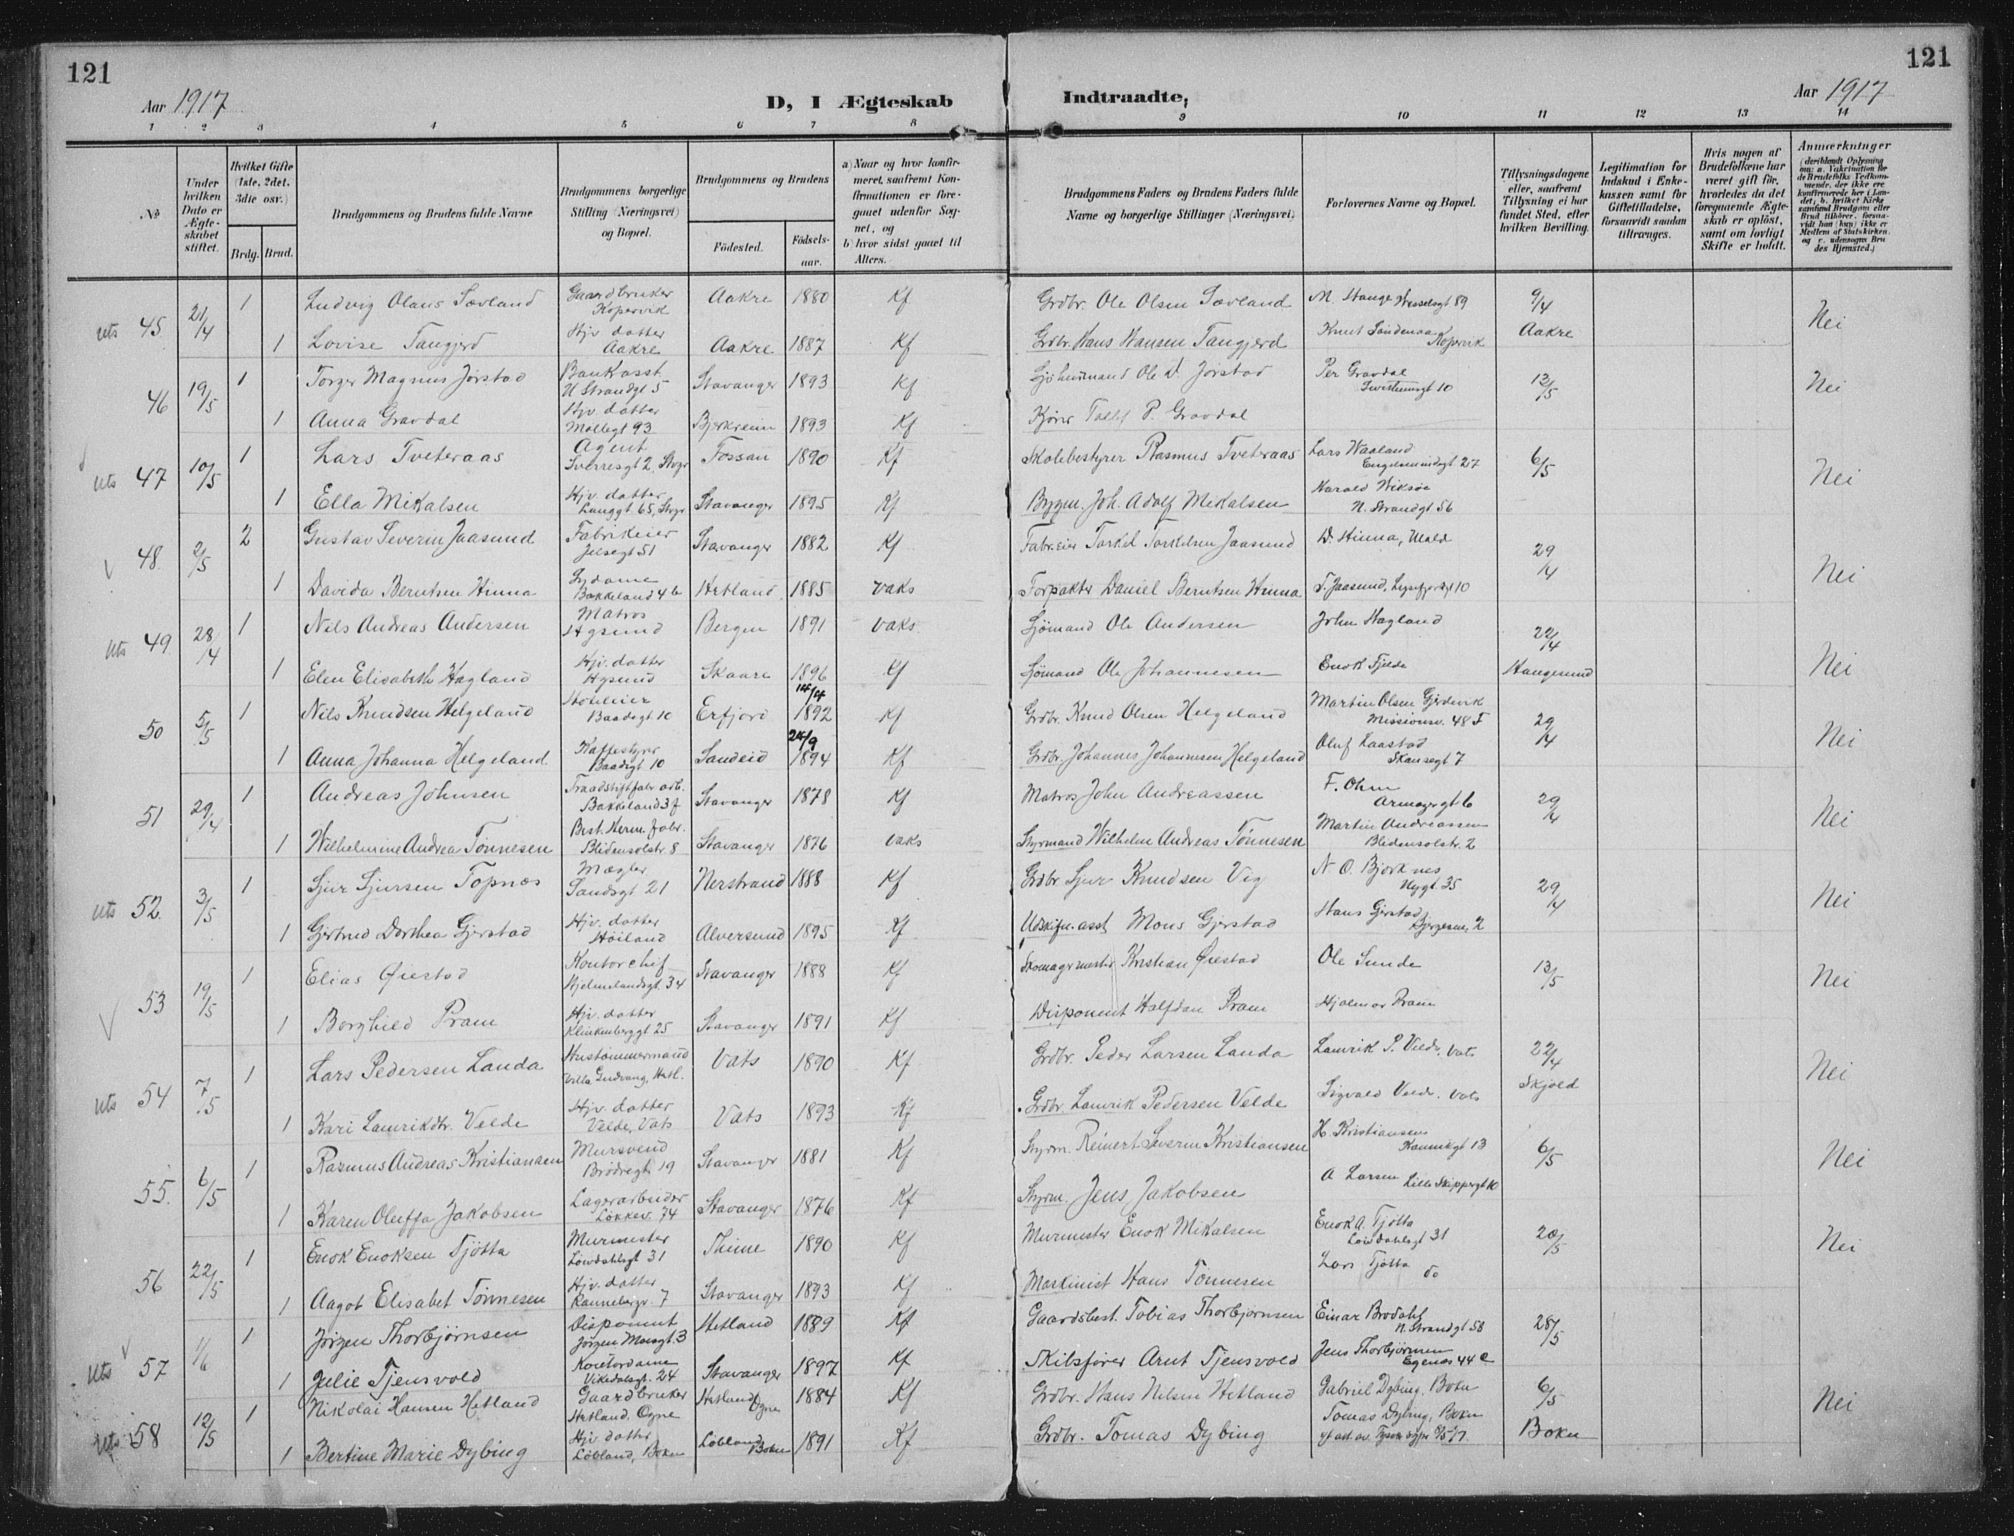 121
121
Aar 1917
D, I Ægteskab
Indtraadte,
Aar 1917
1 2 3 4 5 6 7 8 9 10 11 12 13 14
No
Under hvilken Dato er Ægteskabet stiftet.
Hvilket Gifte (1ste, 2det, 3die osv.)
Brdg. Brud.
Brudgommens og Brudens fulde Navne
Brudgommens borgerlige Stilling (Næringsvei) og Bopæl.
Brudgommens og Brudens
Fødested.
Fødselsaar.
a) Naar og hvor konfirmeret, saafremt Konfirmationen er foregaaet udenfor Sognet, og
b) hvor sidst gaaet til Alters.
Brudgommens Faders og Brudens Faders fulde Navne og borgerlige Stillinger (Næringsvei)
Forlovernes Navne og Bopæl.
Tillysningsdagene eller, saafremt Tillysning ei har fundet Sted, efter hvilken Bevilling.
Legitimation for Indskud i Enkekassen samt for Giftetilladelse, forsaavidt saadan tiltrænges.
Hvis nogen af Brudefolkene har været gift før, hvorledes da det foregaaende Ægteskab er opløst, samt om lovligt Skifte er holdt.
Anmærkninger
uts 45 21/4 1 Ludvig Olaus Sævland Gaardbruker Kopervik Aakre 1880 Kf Grdbr. Ole Olsen Sævland M. Hauge Wesselsgt 89 9/4 Nei
1 Lovise Tangjerd Hjv. datter Aakre Aakre 1887 Kf Grdbr. Hans Hansen Tangjerd Knut Kopervik Aakre
46 19/5 1 Torger Magnus Jørstad Bankasst. N Strandgt 5 Stavanger 1893 Kf Ole D. Jørstad Per Gravdal 10 13/5 Nei
1 Anna Gravdal Hjv. datter Møllegt 93 Bjerkreim 1893 Kf Kjører P. Gravdal
uts 47 10/5 1 Lars Tveteraas Agent Sverresgt 2, Stvgr Fossan 1890 Kf Skolebestyrer Rasmus Tveteraas Lars Waaland Engelsmindegt 27 6/5 Nei
1 Ella Mikalsen Hjv. datter Langgt 65, Stvgr Stavanger 1895 Kf Bygm. Joh. Adolf Mikalsen Harald Viksøe N. Strandgt 56
48 2/5 2 Gustav Severin Jaasund Fabrikeier Jelsegt 51 Stavanger 1882 Kf Fabr.eier Torkel Torkelsen Jaasund D. Hinna, Uald 29/4 Nei
1 Davida Berntsen Hinna Sydame Bakkeland 46 Hetland 1885 vaks Forpakter Daniel Berntsen Hinna T. Jaasund, Lysefjordgt 10
uts 49. 28/4 1 Nils Andreas Andersen Matros Hgsund Bergen 1891 vaks Sjømand Ole Andersen John Hagland 22/4 Nei
1 Elen Elisabeth Hagland Hjv. datter Hgsund Skaare 1896 Kf Sjømand Ole Johannesen Enok Tjelde Haugesund
50 5/5 1 Nils Knudsen Helgeland Hoteleier Baadsgt 10 Erfjord 14/4 1892 Kf Grdbr. Knud Olsen Helgeland Martin Olsen Gjerdevik Missionsv. 48 F 29/4 Nei
1 Anna Johanna Helgeland Kaffestyrer Baadsgt 10 Sandeid 24/9 1894 Kf Grdbr. Johannes Johannesen Helgeland Oluf Laastad Skansegt 7
51 29/4 1 Andreas Johnsen Traadstiftfabr. arb. Bakkeland 37 Stavanger 1878 Kf Matros John Andreassen F. Ohm 6 29/4 Nei
1 Wilhelmine Andrea Tönnesen Best. Herm. fabr. Blidensolstr. 8 Stavanger 1876 vaks Styrmand Wilhelm Andreas Tönnesen Martin Andreassen Blidensolstr. 2
uts 52. 3/5 1 Sjur Sjursen Topnæs Mægler Sandsgt 21 Nerstrand 1888 Kf Grdbr Sjur Knudsen Vig N. O. Bjorknes Nygt. 35 29/4 Nei
1 Gjertrud Dorthea Gjerstad Hjv. datter Høiland Alversund 1895 Kf Udskiftn.asst Mons Gjerstad Hans Gjerstad 2
53 19/5 1 Elias Øiestad Kontorchif Hjelmelandsgt. 34 Stavanger 1888 Kf Skomagermester Kristian Øiestad Ole Sunde 13/5 Nei
1 Borghild Pram Hjv. datter Klinkenberggt 25 Stavanger 1891 Kf Disponent Halfdan Pram Hjalmar Pram
uts 54 7/5 1 Lars Pedersen Landa Hustømmermand Villa Hetl. Vats 1890 Kf Grdbr. Peder Larsen Landa Lauvrik P. Velde, Vats 22/4 Nei
1 Kari Lauvriksdtr. Velde Hjv. datter Velde, Vats Vats 1893 Kf Grdbr. Lauvrik Pedersen Velde Sigvald Velde Vats Skjold
55. 6/5 1 Rasmus Andreas Kristiansen Mursvend Brödregt 19 Stavanger 1881 Kf Styrm. Reinert Severin Kristiansen H. Kristiansen Kannikgt 13 6/5 Nei
1 Karen Oluffa Jakobsen Lagerarbeider Løkkev. 74 Stavanger 1876 Kf Styrm. Jens Jakobsen A Larsen Lille Skippergt 10
56 22/5 1 Enok Enoksen Tjötta Murmester Lowdahlsgt 31 Thime 1890 Kf Murmester Enok Mikalsen Enok A. Tjötta Lowdahlsgt 31 20/5 Nei
1 Aagot Elisabet Tönnesen Hjv. datter Rannebergv. 7 Stavanger 1893 Kf Maskinist Hans Tönnesen Lars Tjötta do
uts 57 1/6 1 Jörgen Thorbjörnsen Disponent Jörgen Moesgt. 3 Hetland 1889 Kf Gaardsbest. Tobias Thorbjornsen Einar Brodahl N. Strandgt 58 28/5
1 Julie Tjensvold Kontordame Vikedalsgt. 24 Stavanger 1897 Kf Skibsförer Arnt Tjensvold Jens Thorbjörnsen Egenes 44 e
uts 58 12/5 1 Nikolai Hansen Hetland Gaardbruker Hetland, Ogne Hetland Ogne 1884 Kf Grdbr. Hans Nilsen Hetland Gabriel Dybing, Bokn 6/5 Nei
1 Bertine Marie Dybing Hjv datter Løbland, Bokn Løbland Bokn 1891 Kf Grdbr. Tomas Dybing Tomas Dybing, Bokn Bokn